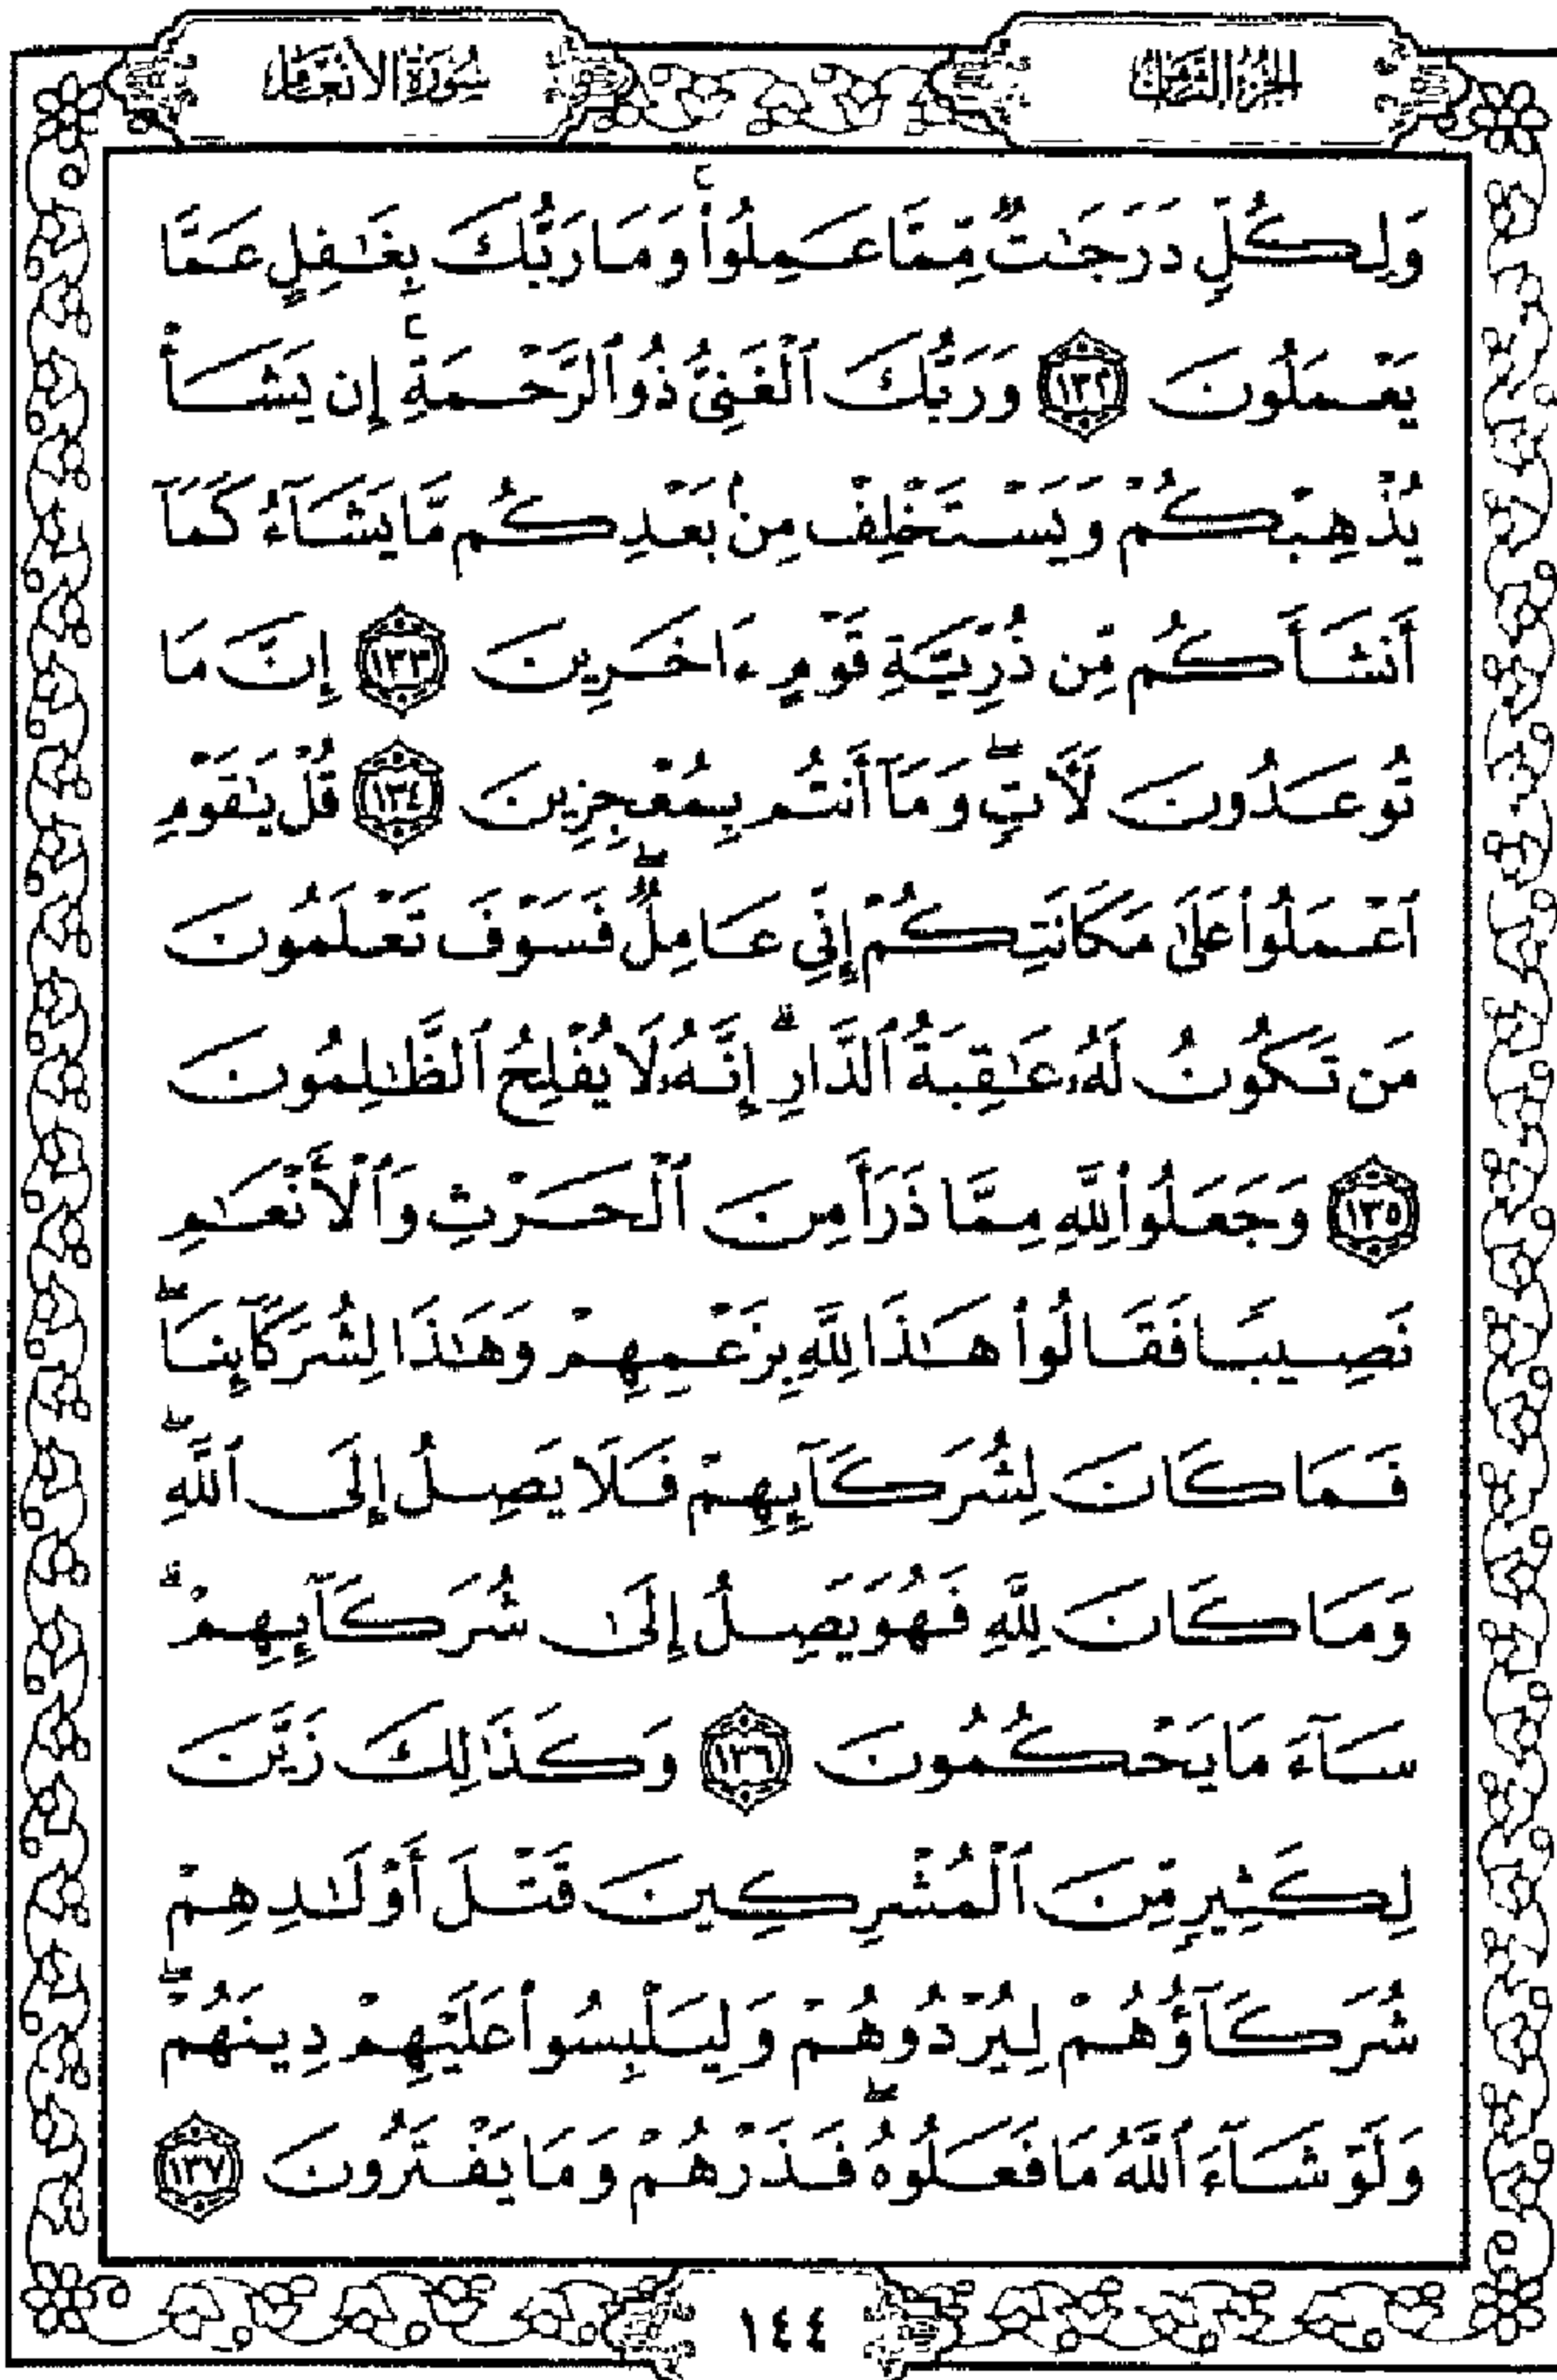 الجزء الثامن
سورة الأنعام
وَلِكُلٍّ دَرَجَٰتٌ مِّمَّا عَمِلُوا۟ ۚ وَمَا رَبُّكَ بِغَٰفِلٍ عَمَّا
يَعْمَلُونَ ١٣٢ وَرَبُّكَ ٱلْغَنِىُّ ذُو ٱلرَّحْمَةِ ۚ إِن يَشَأْ
يُذْهِبْكُمْ وَيَسْتَخْلِفْ مِنۢ بَعْدِكُم مَّا يَشَآءُ كَمَآ
أَنشَأَكُم مِّن ذُرِّيَّةِ قَوْمٍ ءَاخَرِينَ ١٣٣ إِنَّ مَا
تُوعَدُونَ لَءَاتٍ ۖ وَمَآ أَنتُم بِمُعْجِزِينَ ١٣٤ قُلْ يَٰقَوْمِ
ٱعْمَلُوا۟ عَلَىٰ مَكَانَتِكُمْ إِنِّى عَامِلٌ ۖ فَسَوْفَ تَعْلَمُونَ
مَن تَكُونُ لَهُۥ عَٰقِبَةُ ٱلدَّارِ ۗ إِنَّهُۥ لَا يُفْلِحُ ٱلظَّٰلِمُونَ
١٣٥ وَجَعَلُوا۟ لِلَّهِ مِمَّا ذَرَأَ مِنَ ٱلْحَرْثِ وَٱلْأَنْعَٰمِ
نَصِيبًا فَقَالُوا۟ هَٰذَا لِلَّهِ بِزَعْمِهِمْ وَهَٰذَا لِشُرَكَآئِنَا ۖ
فَمَا كَانَ لِشُرَكَآئِهِمْ فَلَا يَصِلُ إِلَى ٱللَّهِ ۖ
وَمَا كَانَ لِلَّهِ فَهُوَ يَصِلُ إِلَىٰ شُرَكَآئِهِمْ ۗ
سَآءَ مَا يَحْكُمُونَ ١٣٦ وَكَذَٰلِكَ زَيَّنَ
لِكَثِيرٍ مِّنَ ٱلْمُشْرِكِينَ قَتْلَ أَوْلَٰدِهِمْ
شُرَكَآؤُهُمْ لِيُرْدُوهُمْ وَلِيَلْبِسُوا۟ عَلَيْهِمْ دِينَهُمْ ۖ
وَلَوْ شَآءَ ٱللَّهُ مَا فَعَلُوهُ ۖ فَذَرْهُمْ وَمَا يَفْتَرُونَ ١٣٧
١٤٤